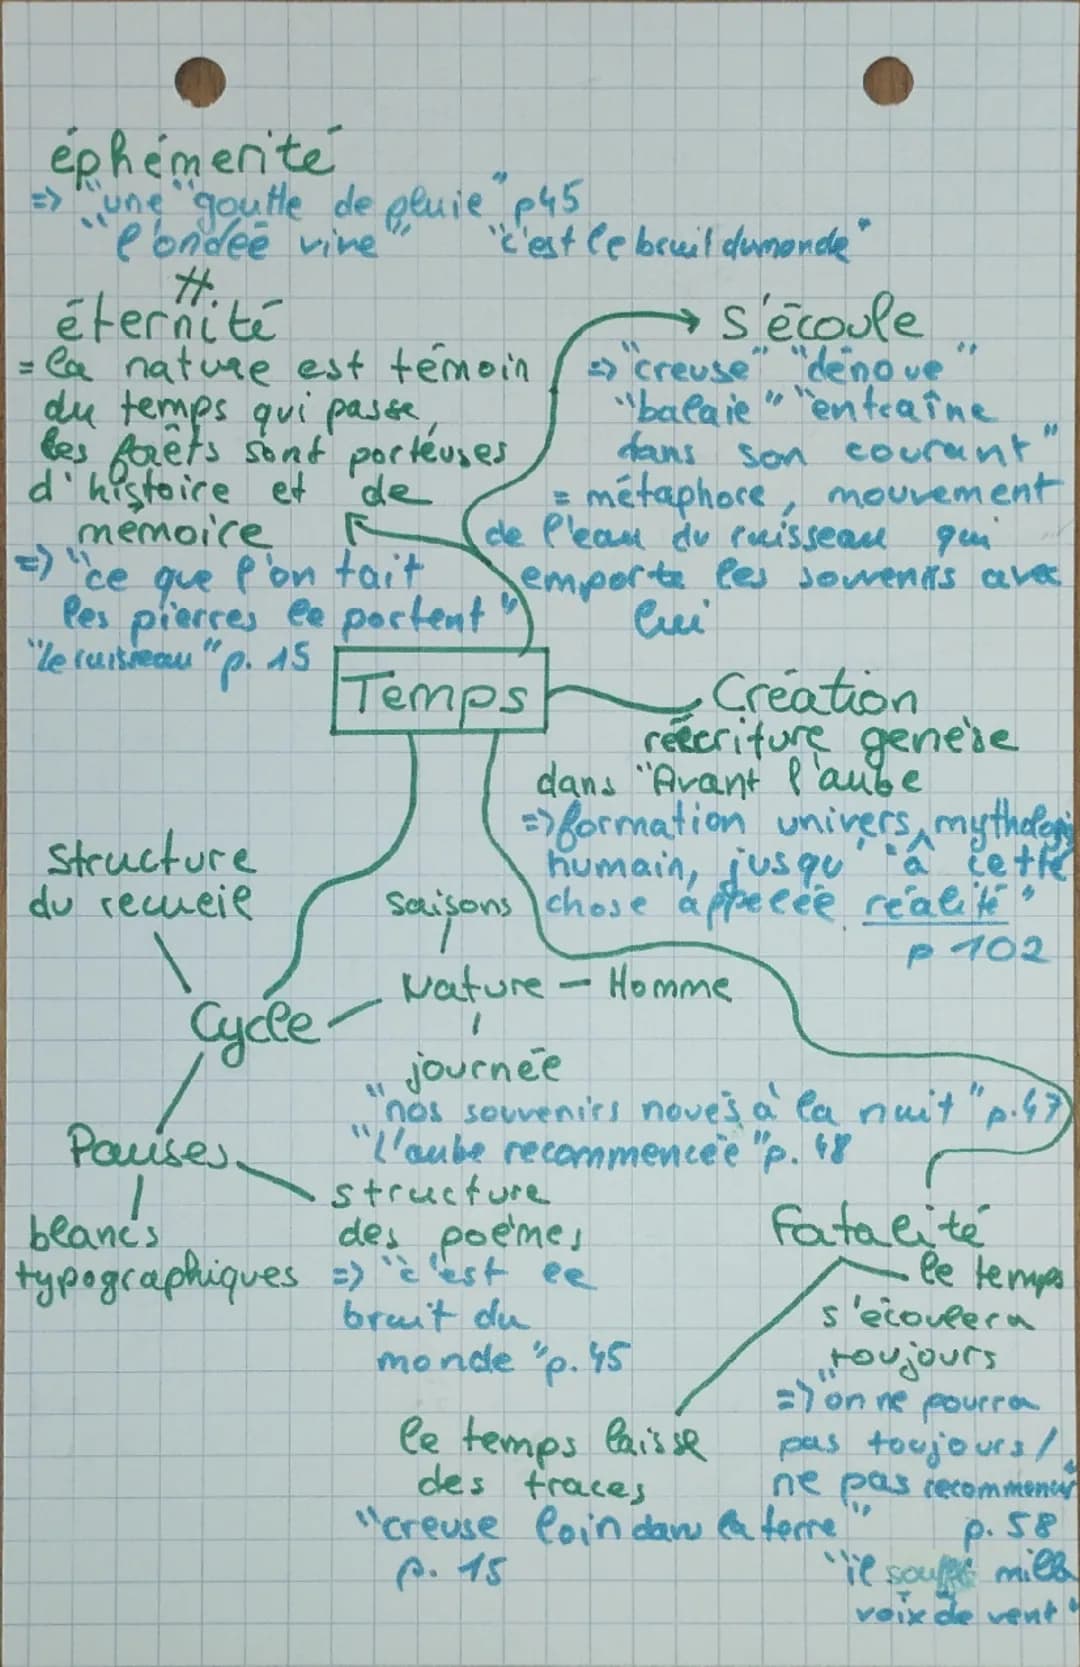 éphémerité
=> "une" goutte de pluie" p45
"l'ondée vive" "c'est le bruit du monde"
#
éternité
= la nature est témoin
du temps qui passe,
les forêts sont porteuses
d'histoire et de
mémoire
=> "ce que l'on tait
les pierres le portent"
"le ruisseau" p. 15
s'écoule
=> "creuse" "dénoue"
"balaie" "entraîne
dans son courant"
= métaphore, mouvement
de l'eau du ruisseau qui
emporte les souvenirs avec
lui
Temps
Création
réécriture genèse
dans "Avant l'aube
=> formation univers, mythologie
humain, jusqu' "à cette
chose appelée réalité"
p 102
structure
du recueil
saisons
Nature - Homme
Cycle
journée
"nos souvenirs noués à la nuit" p.47
"l'aube recommencée" p. 48
Pauses
structure
des poèmes
=> "c'est le
bruit du
monde" p. 45
blancs
typographiques
Fatalité
le temps
s'écoulera
toujours
=> "on ne pourra
pas toujours /
ne pas recommencer"
p. 58
"il souffle mille
voix de vent"
le temps laisse
des traces
"creuse loin dans la terre"
p. 15